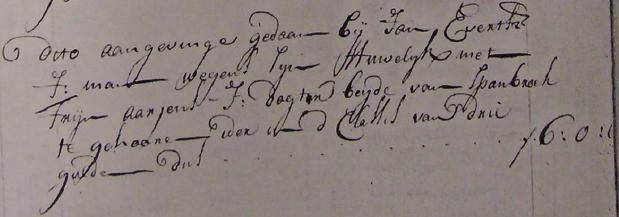 dito aangevinge gedaan bij Jan Everts
J: man wegens sijn Huwelijk met
Trijn aarjens J: dogter beyde van Spanbroek
te gehoorne ider in d Classis van drie
gulde dus f 6:0: